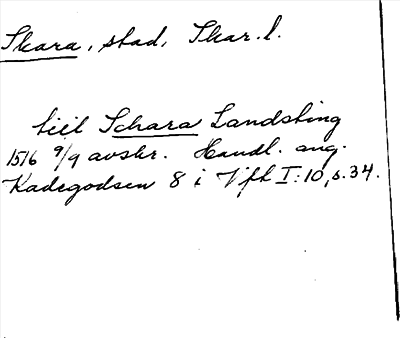 Skara, stad, Skar. l.
tiil Schara Landsting
1516 9/9 avskr. Handl. ang.
Kadegodsen 8 i Vft I:10, s. 34.